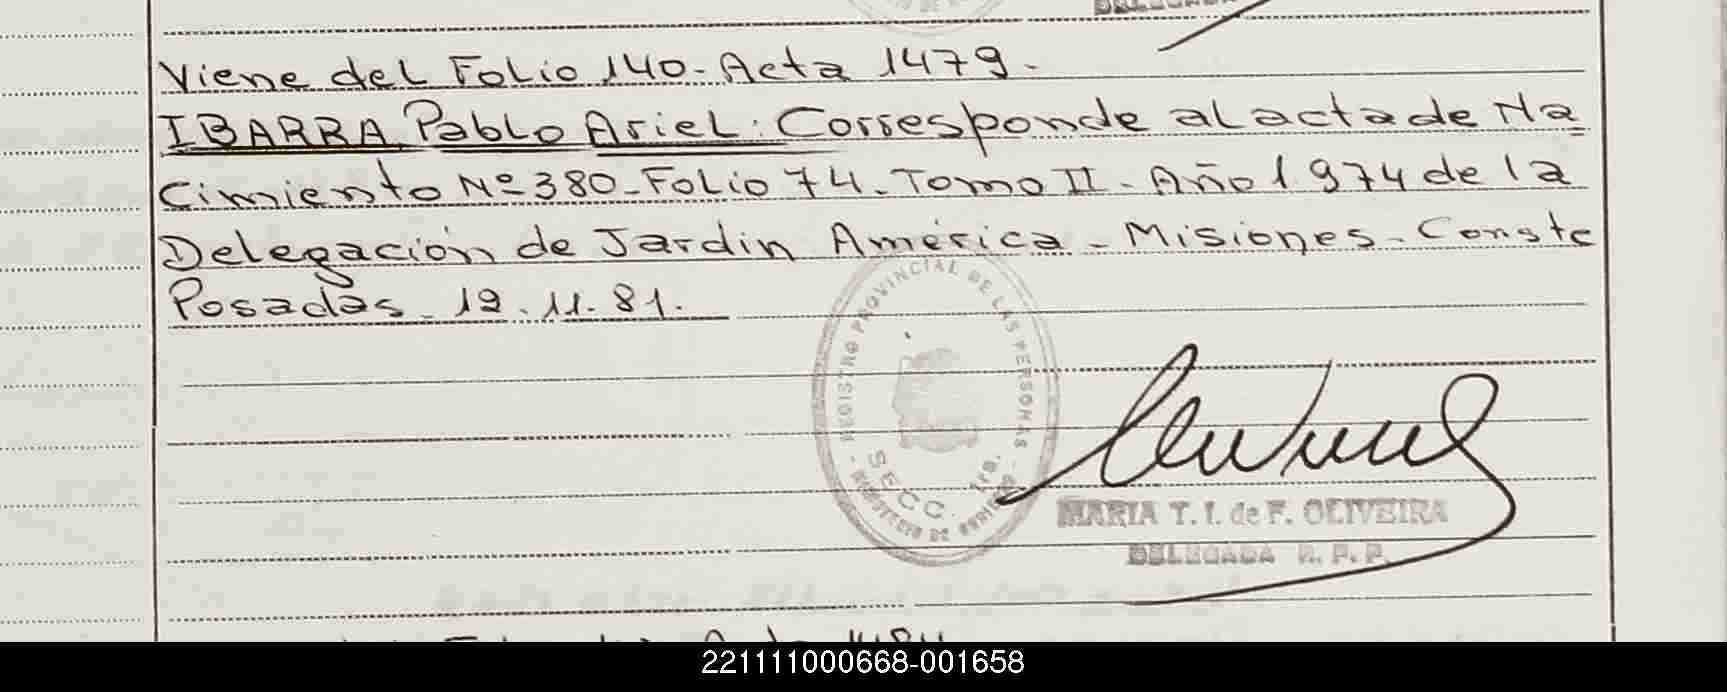 Viene del Folio 140. Acta 1479.
IBARRA, Pablo Ariel: Corresponde al acta de Na
cimiento Nº 380. Folio 74. Tomo II. Año 1974 de la
Delegación de Jardin América. Misiones. Conste
Posadas. 12.11.81.
REGISTRO PROVINCIAL DE LAS PERSONAS
SECC. 1ra.
MARIA T. I. de F. OLIVEIRA
DELEGADA R. P. P.
221111000668-001658